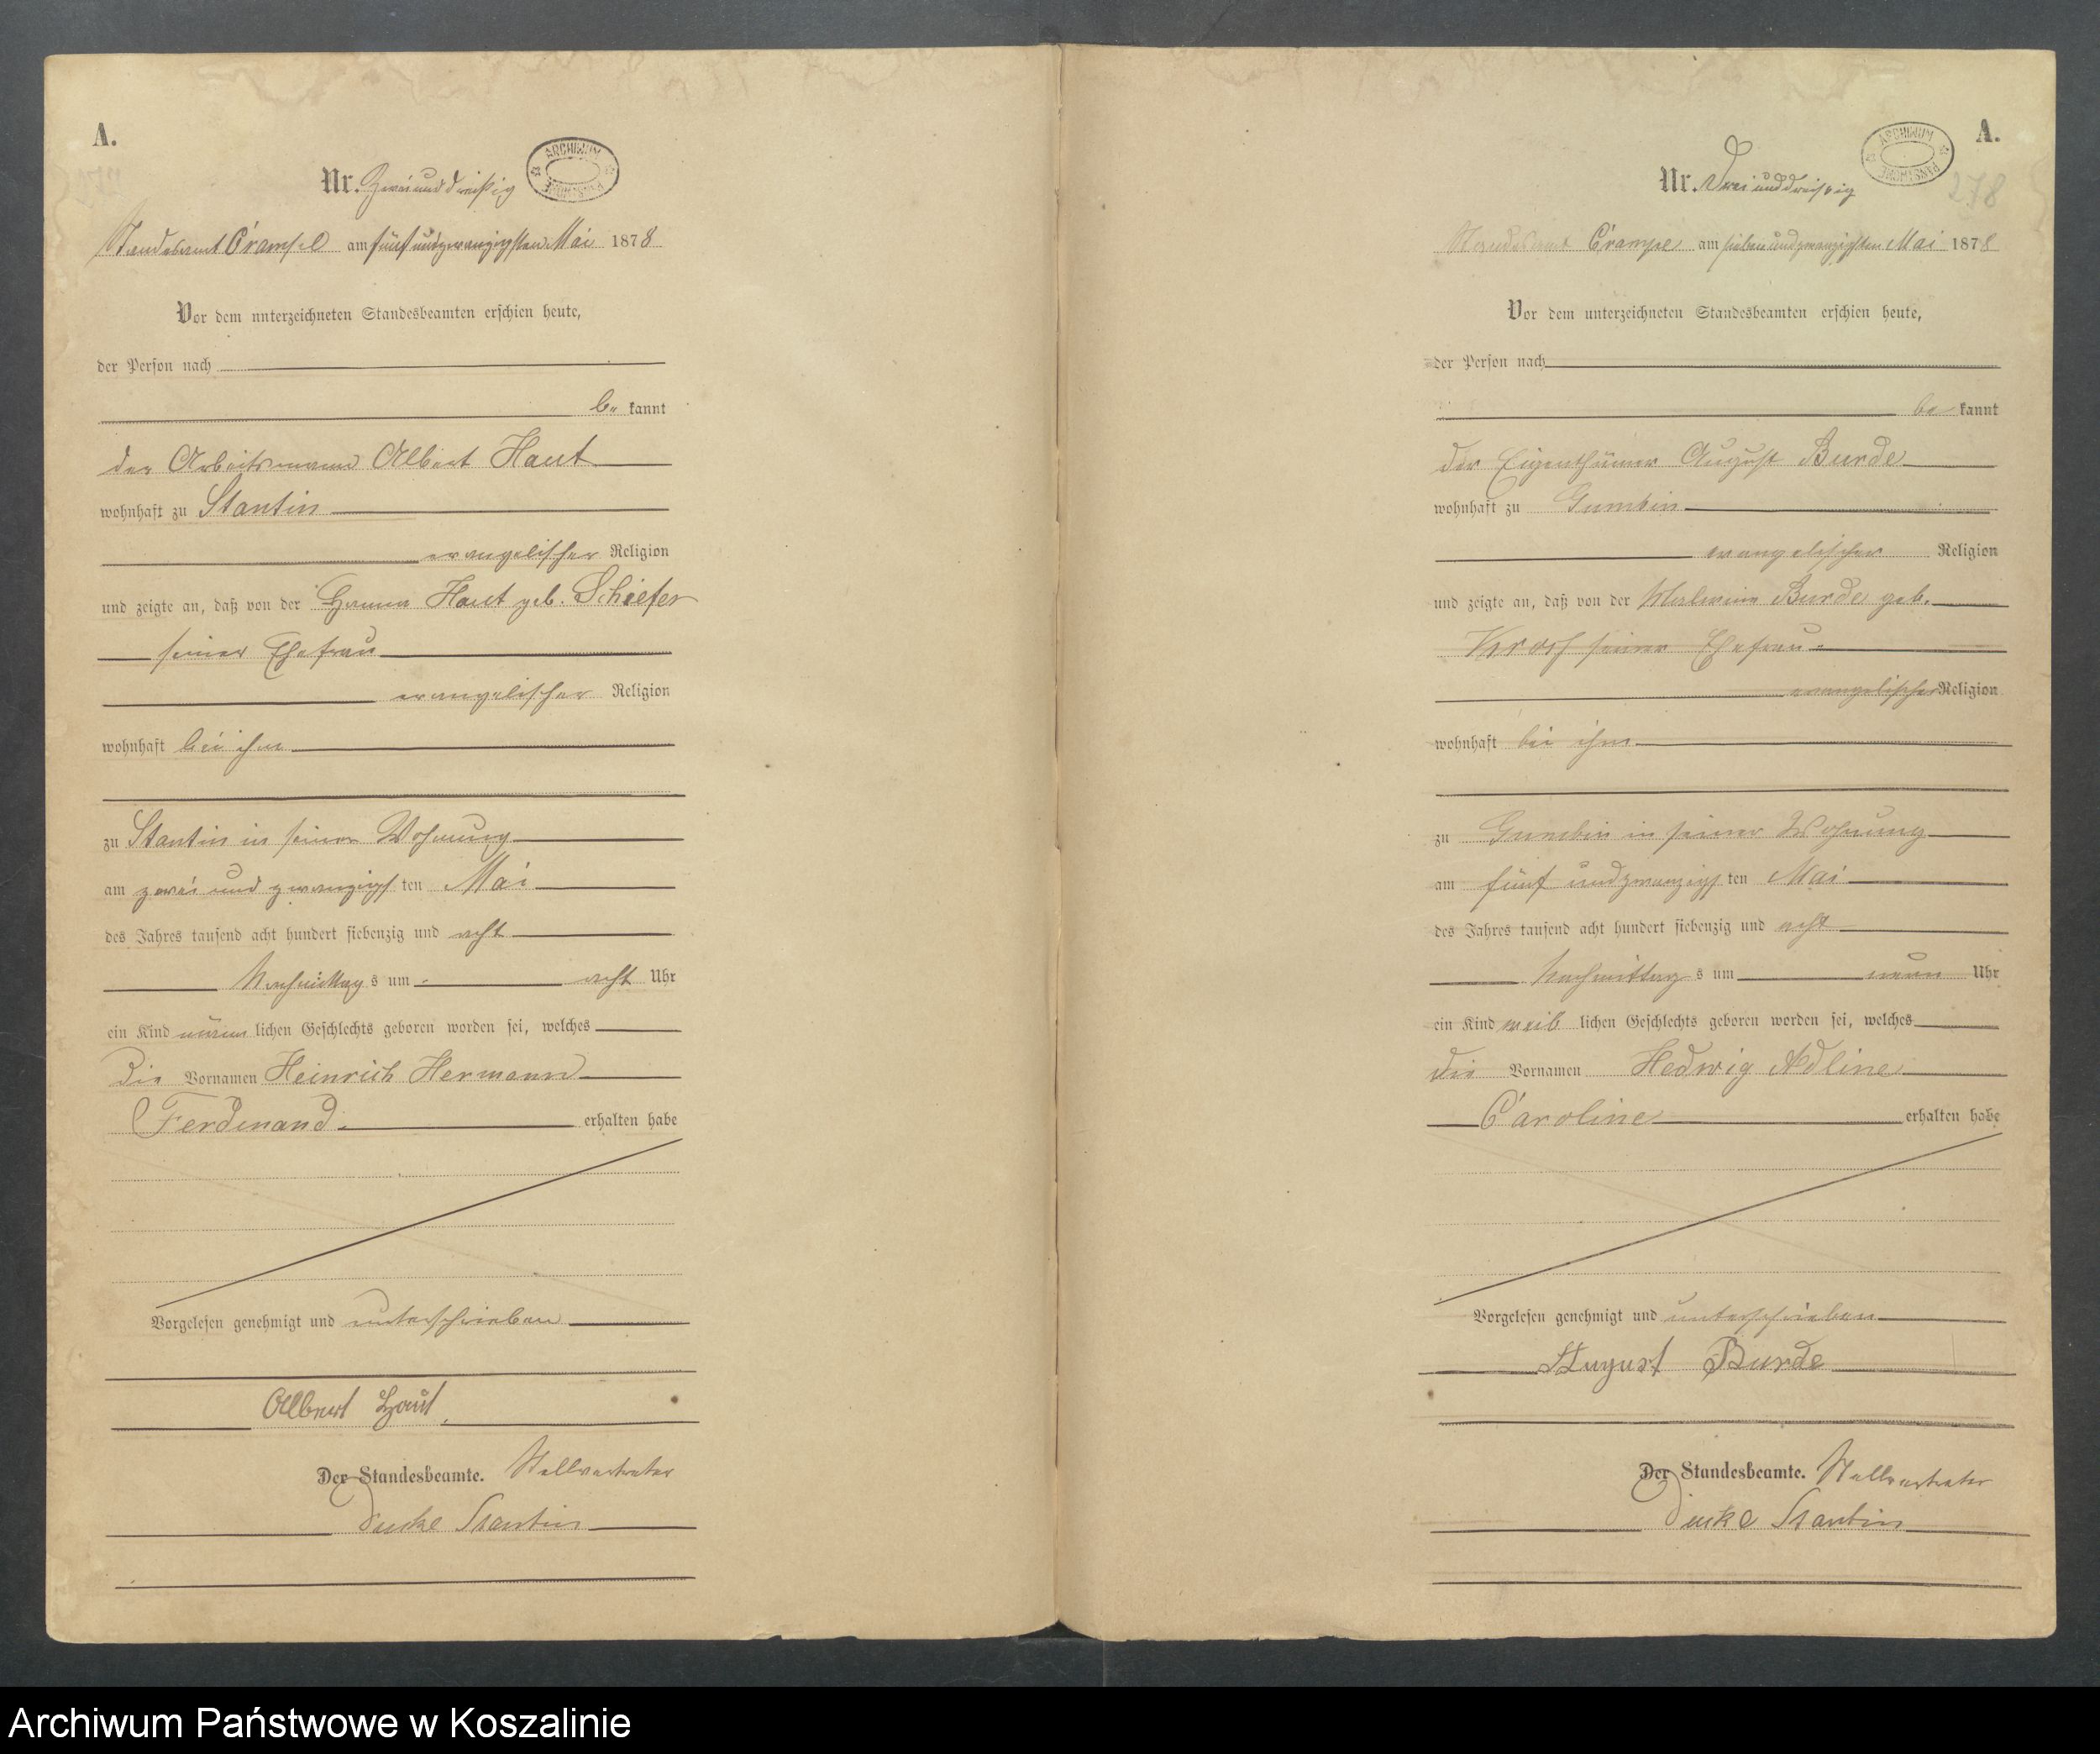 A.
ARCHIWUM PAŃSTWOWE
Nr. Zwei und dreißig
Standesamt Crampel am fünf und zwanzigsten Mai 1878
Vor dem unterzeichneten Standesbeamten erschien heute,
der Person nach
be kannt
der Arbeitsmann Albert Haut
wohnhaft zu Stantin
evangelischer Religion
und zeigte an, daß von der Haut geb. Schiefer
seiner Ehefrau
evangelischer Religion
wohnhaft bei ihm
zu Stantin in seiner Wohnung
am zwei und zwanzigs ten Mai
des Jahres tausend acht hundert siebenzig und acht
Nachmittag s um acht Uhr
ein Kind männ lichen Geschlechts geboren worden sei, welches
die Vornamen Heinrich Hermann
Ferdinand erhalten habe
Vorgelesen genehmigt und unterschrieben
Albert Haut
Der Standesbeamte. Stellvertreter
Stantin
A.
ARCHIWUM PAŃSTWOWE
278
Nr. Drei und dreißig
Standesamt Crampe am sieben und zwanzigsten Mai 1878
Vor dem unterzeichneten Standesbeamten erschien heute,
der Person nach
be kannt
der Eigenthümer August Burde
wohnhaft zu Gumbin
evangelischer Religion
und zeigte an, daß von der Burde geb.
seiner Ehefrau
evangelischer Religion
wohnhaft bei ihm
zu Gumbin in seiner Wohnung
am fünf und zwanzigs ten Mai
des Jahres tausend acht hundert siebenzig und acht
Nachmittag s um neun Uhr
ein Kind weib lichen Geschlechts geboren worden sei, welches
die Vornamen Hedwig Adline
Caroline erhalten habe
Vorgelesen genehmigt und unterschrieben
August Burde
Der Standesbeamte. Stellvertreter
Stantin
Archiwum Państwowe w Koszalinie